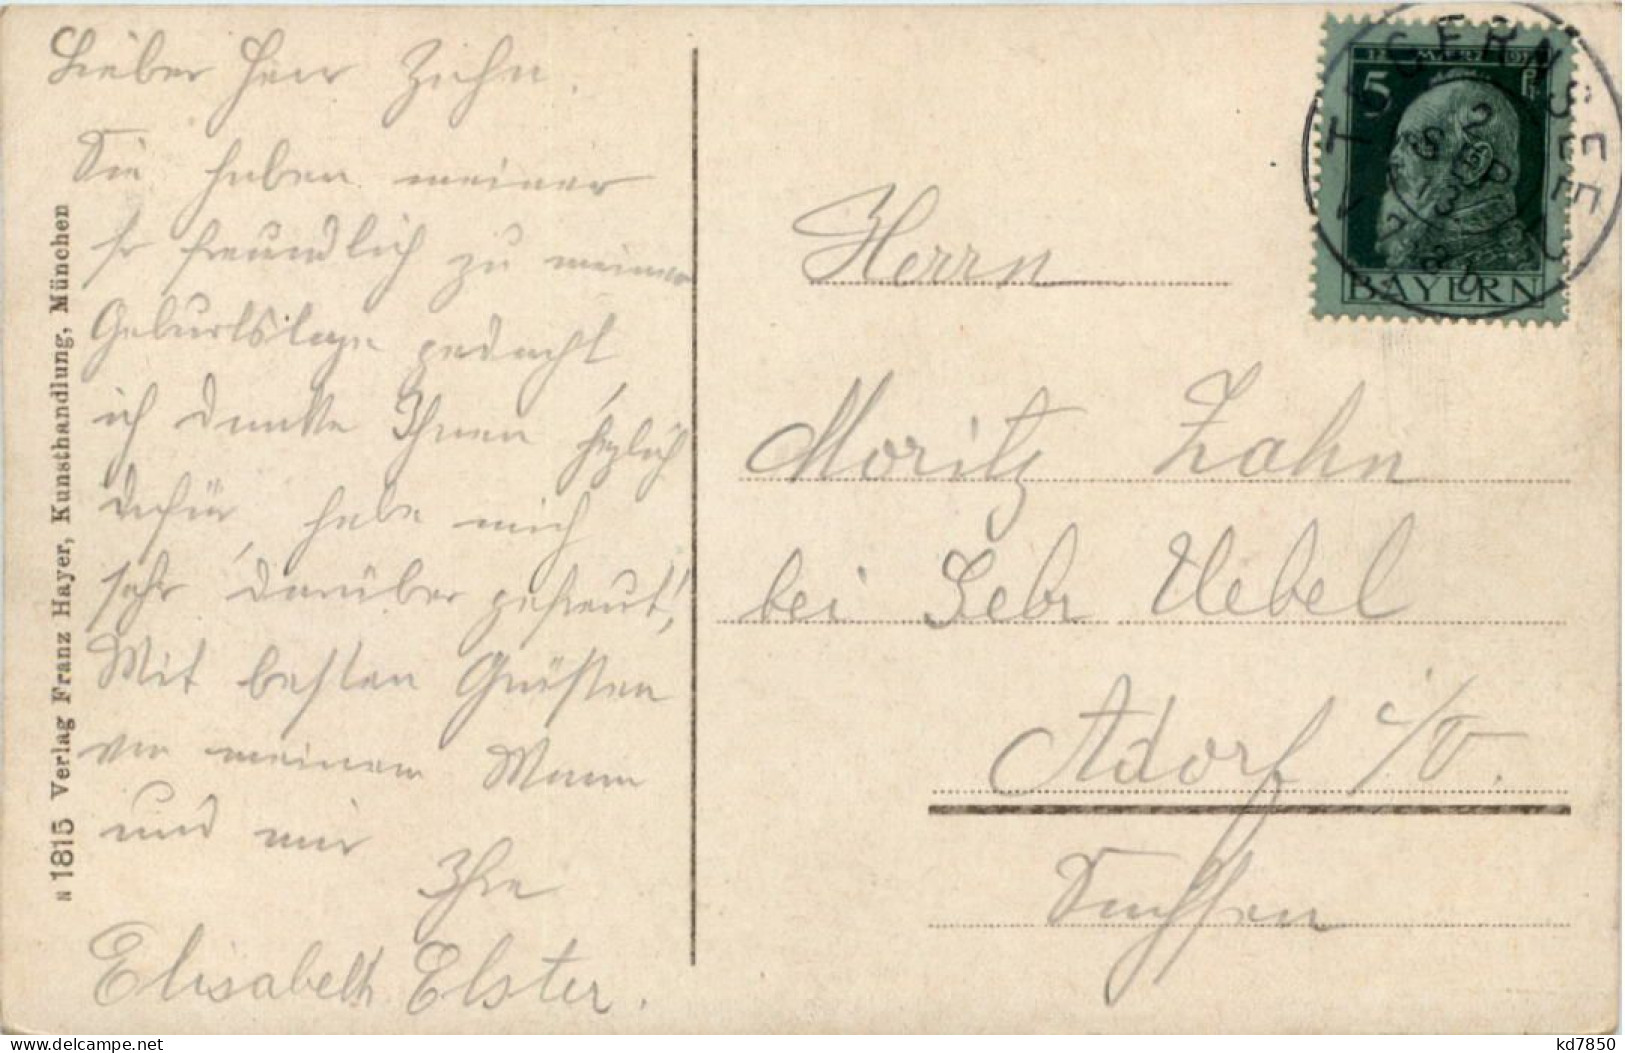 Lieber Herr Zahn.
Sie haben meiner
so freundlich zu meinem
Geburtstage gedacht
ich danke Ihnen herzlich
dafür, habe mich
sehr darüber gefreut!
Mit besten Grüssen
von meinem Mann
und mir
Ihre
Elisabeth Elster.
N 1815 Verlag Franz Hayer, Kunsthandlung, München
TEGERNSEE
2
SEP
13
12 MÆRZ
5 Pf
BAYERN
Herrn
Moritz Zahn
bei Gebr Uebel
Adorf i/V.
Sachsen
kd7850